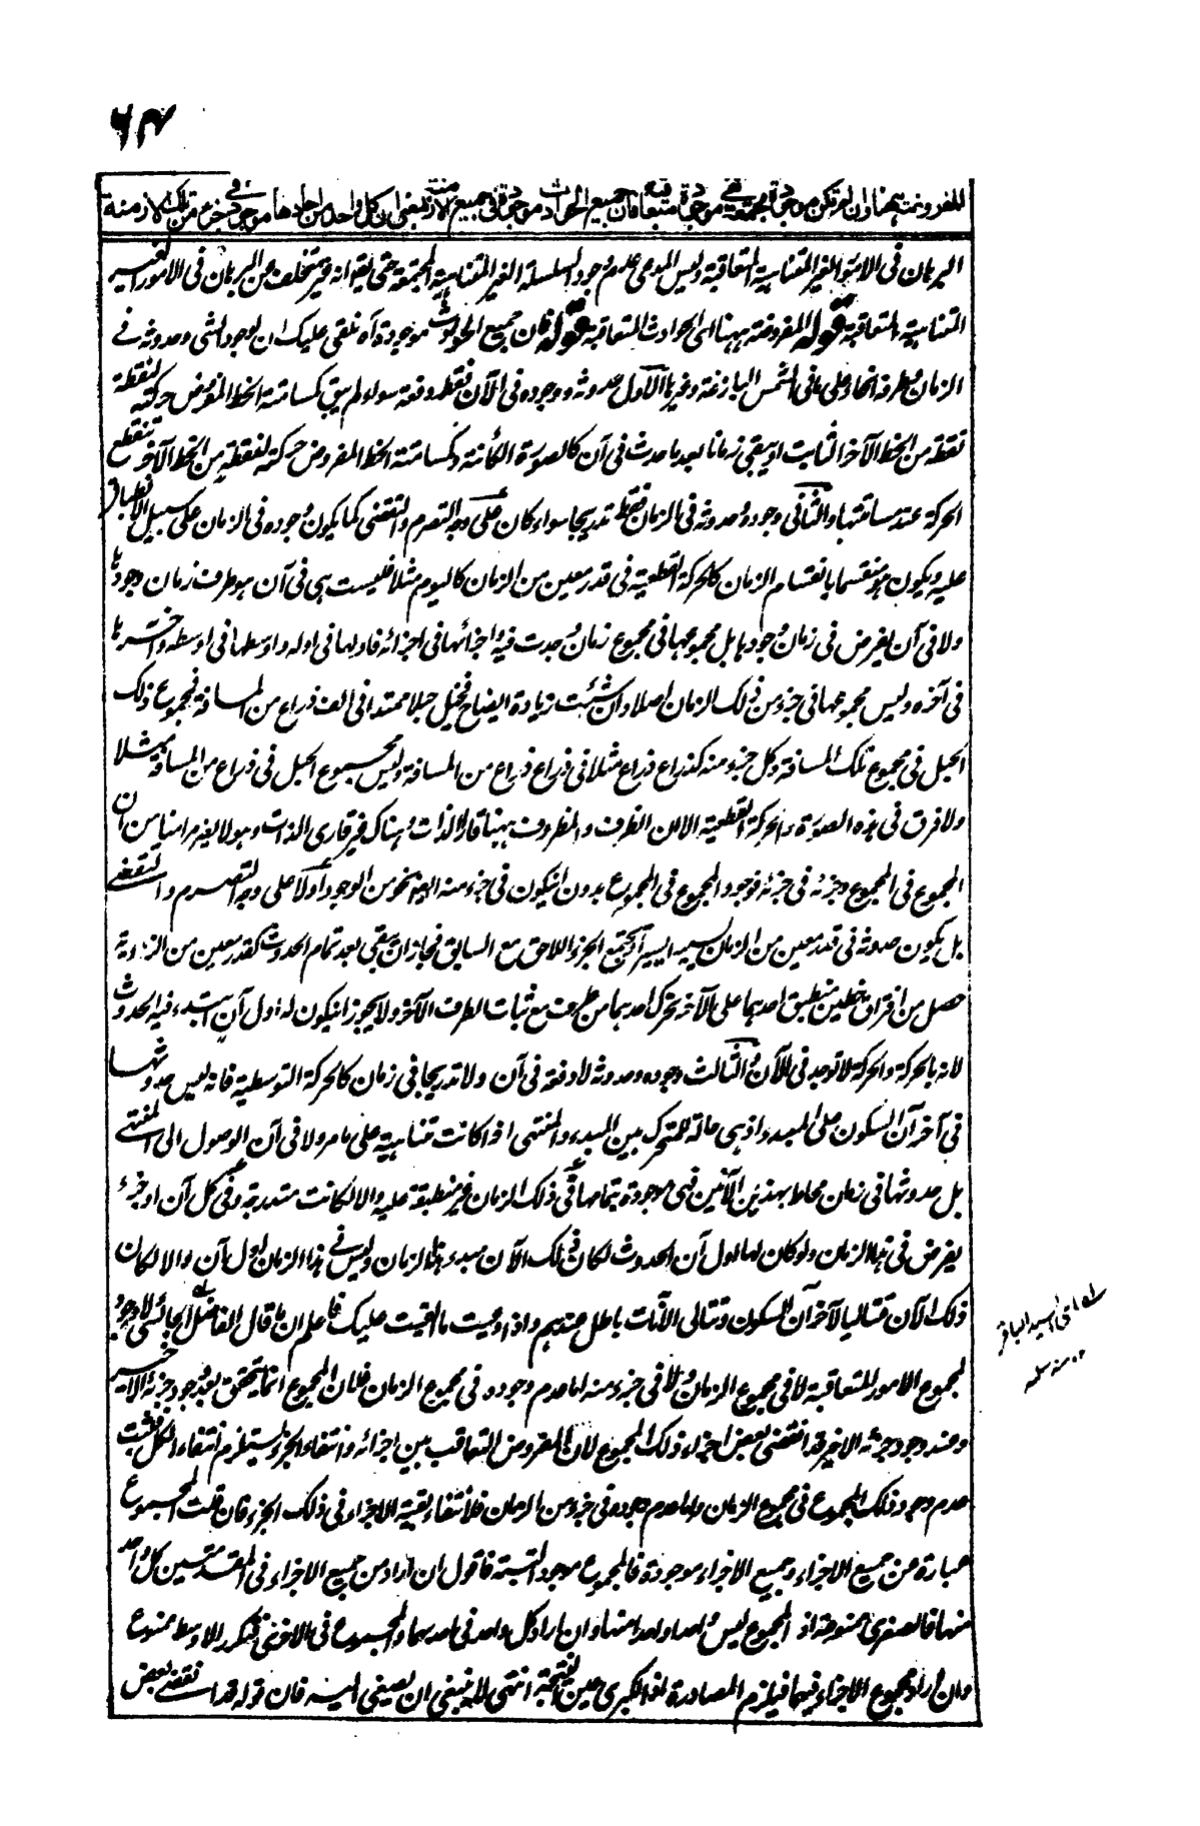 ٦٣
المفروضة ههنا وان لم تكن موجودة مجتمعة فهي موجودة متعاقبة فان جميع الحوادث موجودة في جميع الازمنة بمعنى ان كل واحد من احادها موجود في جزء من تلك الازمنة
البرهان في الامور الغير المتناهية المتعاقبة وليس المدعى عدم وجود السلسلة الغير المتناهية المجتمعة حتى يقولوا انه غير متخلف عن البرهان في الامور الغير
المتناهية المتعاقبة قوله المفروضة ههنا اى الحوادث المتعاقبة قوله فان جميع الحوادث موجودة آه نلقى عليك ان لوجود الشئ وحدوثه في
الزمان وطرفه انحاء على ما في الشمس البازغة وغيرها الاول حدوثه ووجوده في الآن فقط دفعة سواء لم يبق كمسامتة الخط المفروض حركته لنقطة
نقطة من الخط الآخر الثابت او يبقى زمانا بعد ما حدث في آن كالصورة الكائنة وكمسامتة الخط المفروض حركته لنقطة من الخط الآخر تنقطع
الحركة عند مسامتتها والثاني وجوده وحدوثه في الزمان فقط تدريجا سواء كان على وجه التصرم والتقضى كما يكون وجوده في الزمان على سبيل الانطباق
عليه ويكون هو منقسما بانقسام الزمان كالحركة القطعية في قدر معين من الزمان كاليوم مثلا فليست هى في آن هو طرف زمان وجودها
ولا في آن يفرض في زمان وجودها بل مجموعها في مجموع زمان وجدت فيه واجزائها في اجزائه فاولها في اوله واوسطها في اوسطه وآخرها
في آخره وليس مجموعها في جزء من ذلك الزمان اصلا وان شئت زيادة ايضاح فتخيل حبلا ممتدا في الف ذراع من المسافة فمجموع ذلك
الحبل في مجموع تلك المسافة وكل جزء منه كذراع ذراع مثلا في ذراع ذراع من المسافة وليس مجموع الحبل في ذراع من المسافة مثلا
ولا فرق في هذه الصورة والحركة القطعية الا ان الظرف والمظروف ههنا قار الذات وهناك غير قارى الذات وهو لا يضر امنا من ان
المجموع في المجموع وجزئه في جزئه فوجود المجموع في المجموع بدون ان يكون في جزء منه ايضا نحو من الوجود اولا على وجه التصرم والتقضى
بل يكون حدوثه في قدر معين من الزمان يسيرا يسيرا ويجتمع الجزء اللاحق مع السابق فجاز ان يبقى بعد تمام الحدوث كقدر معين من الزاوية
حصل من افتراق خطين منطبق احدهما على الآخر بتحرك احدهما من طرف مع ثبات الطرف الآخر ولا يجوز ان يكون له اول آن يبتدء فيه الحدوث
لانه بالحركة والحركة لا توجد في الآن والثالث وجوده وحدوثه لا دفعة في آن ولا تدريجا في زمان كالحركة التوسطية فانه ليس حدوثها
في آخر آن السكون على المبدء اذ هى حالة للمتحرك بين المبدء والمنتهى اذا كانت متناهية على ما مر ولا في آن الوصول الى المنتهى
بل حدوثها في زمان محاط بهذين الآنين فهى موجودة بتمامها في ذلك الزمان غير منطبقة عليه والا لكانت متدرجة وفي كل آن او جزء
يفرض في هذا الزمان ولو كان لها اول آن الحدوث لكان ذلك الآن مبدء هذا الزمان وليس في هذا الزمان اول آن والا لكان
ذلك الآن متتاليا لآخر آن السكون وتتالى الآنات باطل عندهم واذا وعيت ما القيت عليك فاعلم ان ما قال الفاضل الجائسى لا وجود
لمجموع الامور المتعاقبة لا في مجموع الزمان ولا في جزء منه اما عدم وجوده في مجموع الزمان فلان المجموع انما يتحقق بعد وجود جزئه الاخير
وعند وجود جزئه الاخير قد انقضى بعض اجزاء ذلك المجموع لان المفروض التعاقب بين اجزائه وانتفاء الجزء يستلزم انتفاء الكل فثبت
عدم وجود ذلك المجموع في مجموع الزمان واما عدم وجوده في جزء من الزمان فلانتفاء بقية الاجزاء في ذلك الجزء فان قلت المجموع
عبارة عن جميع الاجزاء وجميع الاجزاء موجودة فالمجموع موجود البتة فاقول ان اراد من جميع الاجزاء في المقدمتين كل واحد
منها فالصغرى ممنوعة اذ المجموع ليس واحدا واحدا منها وان اراد كل واحد في احدهما والمجموع في الاخرى فتكرر الاوسط ممنوع
وان اراد مجموع الاجزاء فيهما فيلزم المصادرة لان الكبرى عين النتيجة انتهى لا ينبغى ان يصغى اليه فان قوله قد انقضى بعض
له اى السيد الباقر
١٢ منه سلمه